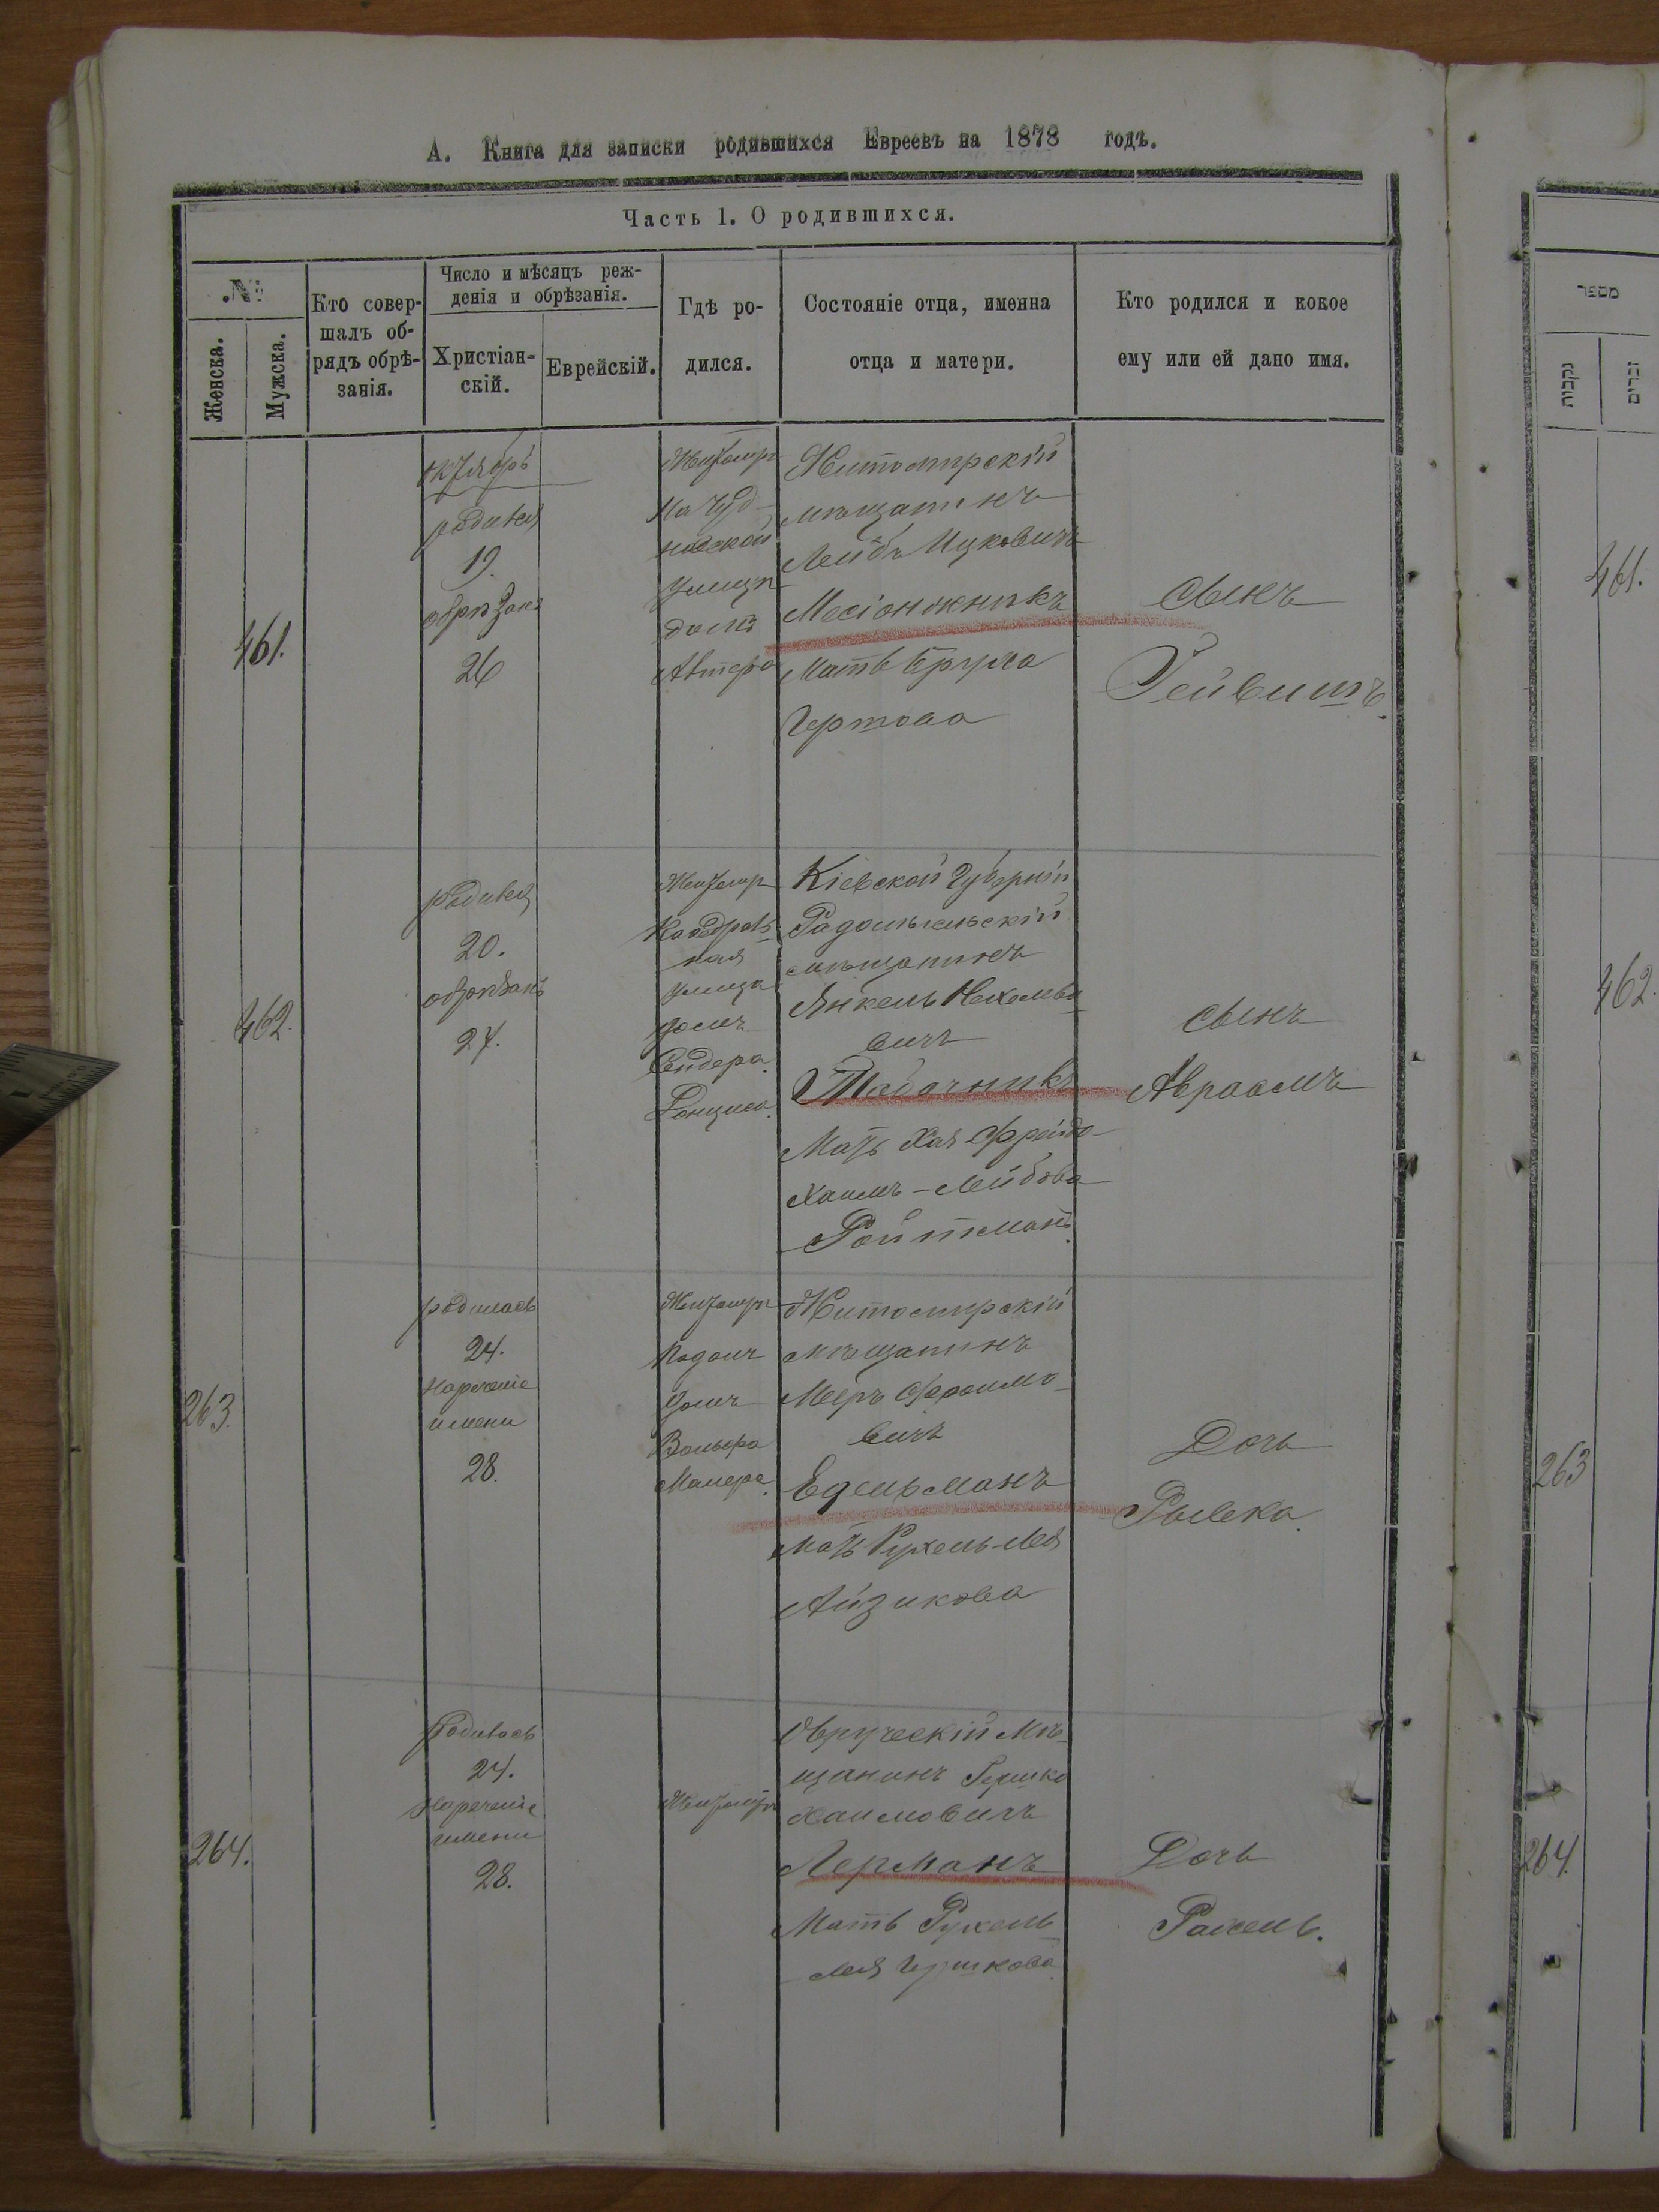 А. Книга для записки родившихся Евреевъ на 1878 годъ.
Часть 1. О родившихся.
№
Женска.
Мужска.
Кто совер-
шалъ об-
рядъ обрѣ-
занія.
Число и мѣсяцъ реж-
денія и обрѣзанія.
Христіан-
скій.
Еврейскій.
Гдѣ ро-
дился.
Состояніе отца, именна
отца и матери.
Кто родился и кокое
ему или ей дано имя.
461.
октябрь
родився
19.
обрѣзанъ
26
Житомиръ
На Чуд-
новской
улицѣ
домъ
Житомирскій
мѣщанинъ
Лейбъ Ицковичъ
Мать Бруха
сынъ
Лейвишъ
462.
родився
20.
обрѣзанъ
27.
Житомир
Кафедраль-
ная
улица
домъ
Сендера
Кіевской Губерніи
Радомысльскій
мѣщанинъ
Янкель
вичъ
Табачникъ
Мать Хая-Фрейда
Хаимъ-Лейбова
Ройтманъ.
сынъ
Авраамъ
263.
родилась
24.
Нареченіе
имени
28.
Житомиръ
Подолъ
домъ
Вольфа
Житомирскій
мѣщанинъ
Меръ Ефроимо-
вичъ
Едельманъ
мать Рухель-Лея
Айзикова
Дочь
Рывка.
264.
Родилась
24.
Нареченіе
имени
28.
Житомиръ
Овруческій Мѣ-
щанинъ Гершко
Хаимовичъ
Лерманъ
Мать Рухель-
Лея Гершкова
Дочь
Рахель.
מספר
נקבות
זכרים
461.
462.
263
264.